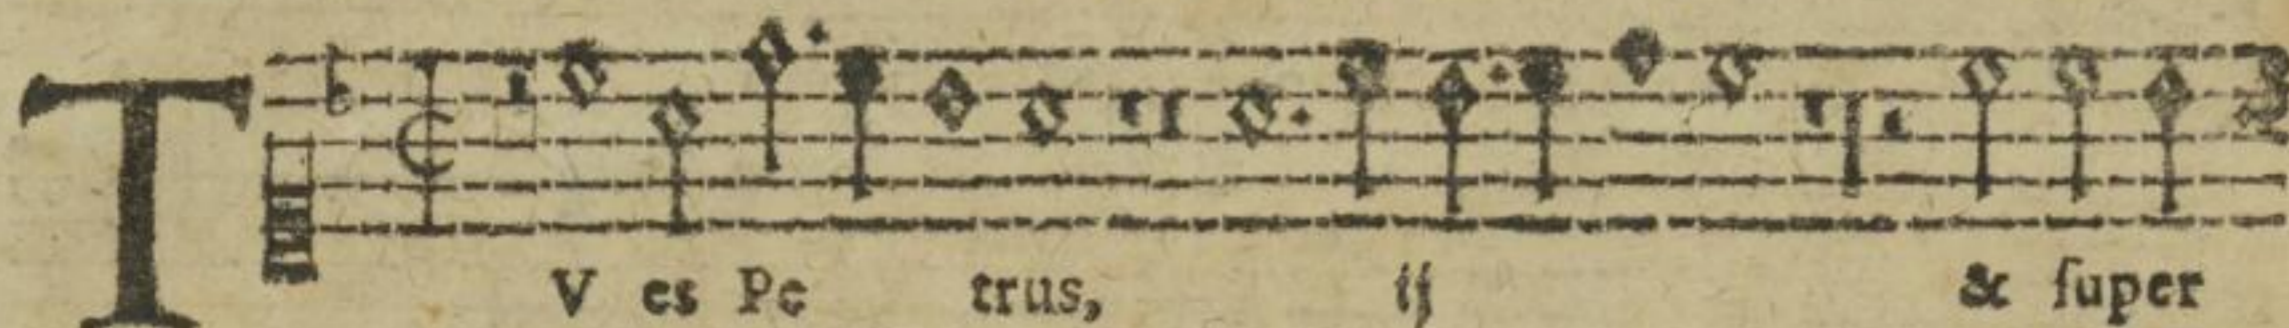 TV es Pe trus, ij & ſuper